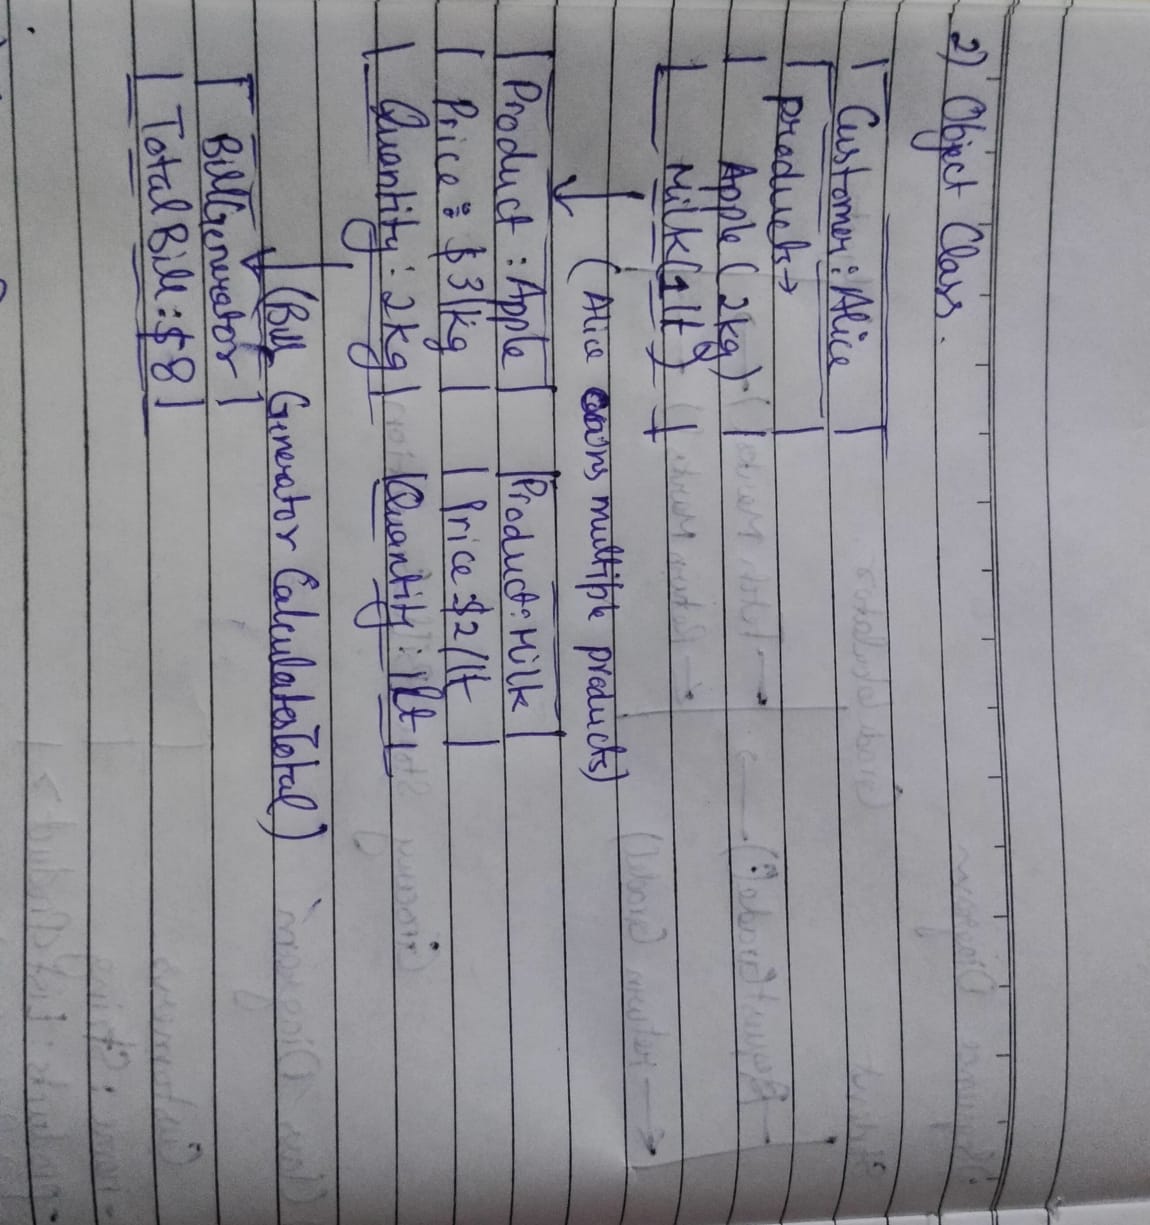 2) Object Class.
Customer: Alice
products→
Apple (2kg)
Milk (1lt)
↓ (Alice owns multiple products)
Product: Apple | Product: Milk
Price: $3/kg | Price $2/lt
Quantity: 2kg | Quantity: 1lt
↓ (Bill Generator Calculates Total)
BillGenerator
Total Bill: $8